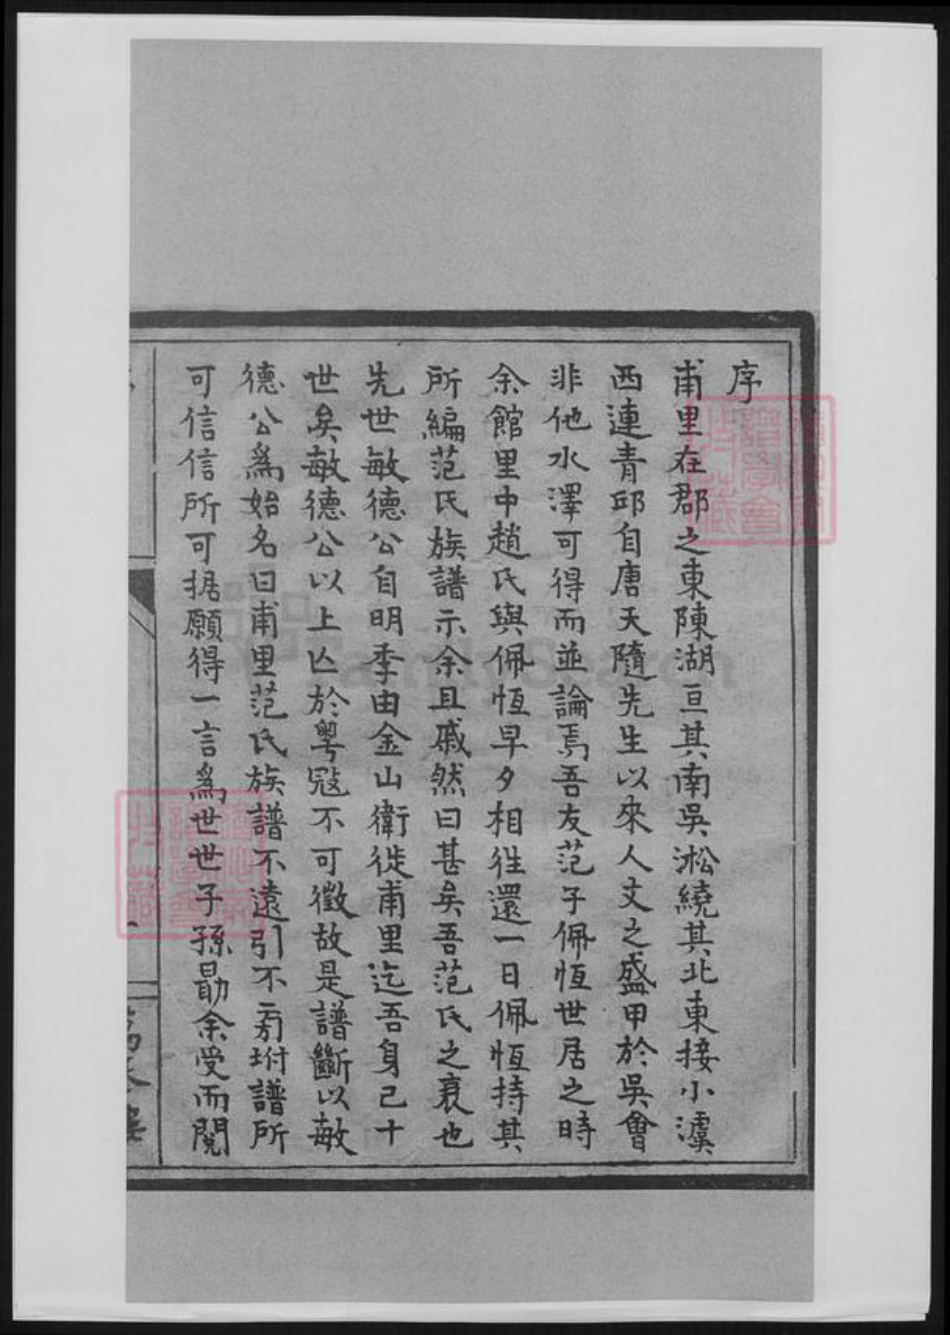 序
甫里在郡之東陳湖亘其南吳淞繞其北東接小澞
西連青邱自唐天隨先生以來人文之盛甲於吳會
非他水澤可得而並論焉吾友范子佩恆世居之時
余館里中趙氏與佩恆早夕相往還一日佩恆持其
所編范氏族譜示余且慼然曰甚矣吾范氏之衰也
先世敏德公自明季由金山衛徙甫里迄吾身已十
世矣敏德公以上亾於粤冦不可徵故是譜斷以敏
德公爲始名曰甫里范氏族譜不遠引不旁坿譜所
可信信所可据願得一言爲世世子孫勖余受而閱